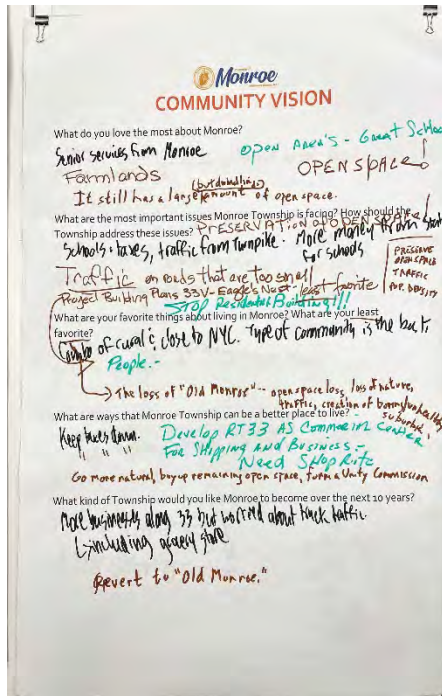 Monroe
COMMUNITY VISION
What do you love the most about Monroe?
Senior services from Monroe
OPEN AREA'S - Great School
Farmlands
OPEN SPACE!
(but dwindling)
It still has a large amount of open space.
What are the most important issues Monroe Township is facing? How should the
Township address these issues?
PRESERVATION of OPEN SPACE!
Schools + taxes, traffic from Turnpike.
More money from State
for schools
Traffic on roads that are too small
PRESERVE
OPEN SPACE
TRAFFIC
POP. DENSITY
Project Building Plans 33 V - Eagle's Nest - least favorite
STOP Residential Building!!!
What are your favorite things about living in Monroe? What are your least
favorite?
Combo of rural & close to NYC. Type of community is the best.
People.-
The loss of "Old Monroe" -- open space loss, loss of nature,
traffic, creation of
suburbia.
What are ways that Monroe Township can be a better place to live?
Keep taxes down.
" " "
Develop RT 33 AS Commercial Center
FOR Shipping AND Business -
Need SHOPRITE
Go more natural, buy up remaining open space, form a Unity Commission
What kind of Township would you like Monroe to become over the next 10 years?
More businesses along 33 but worried about truck traffic
including grocery store
Revert to "Old Monroe."